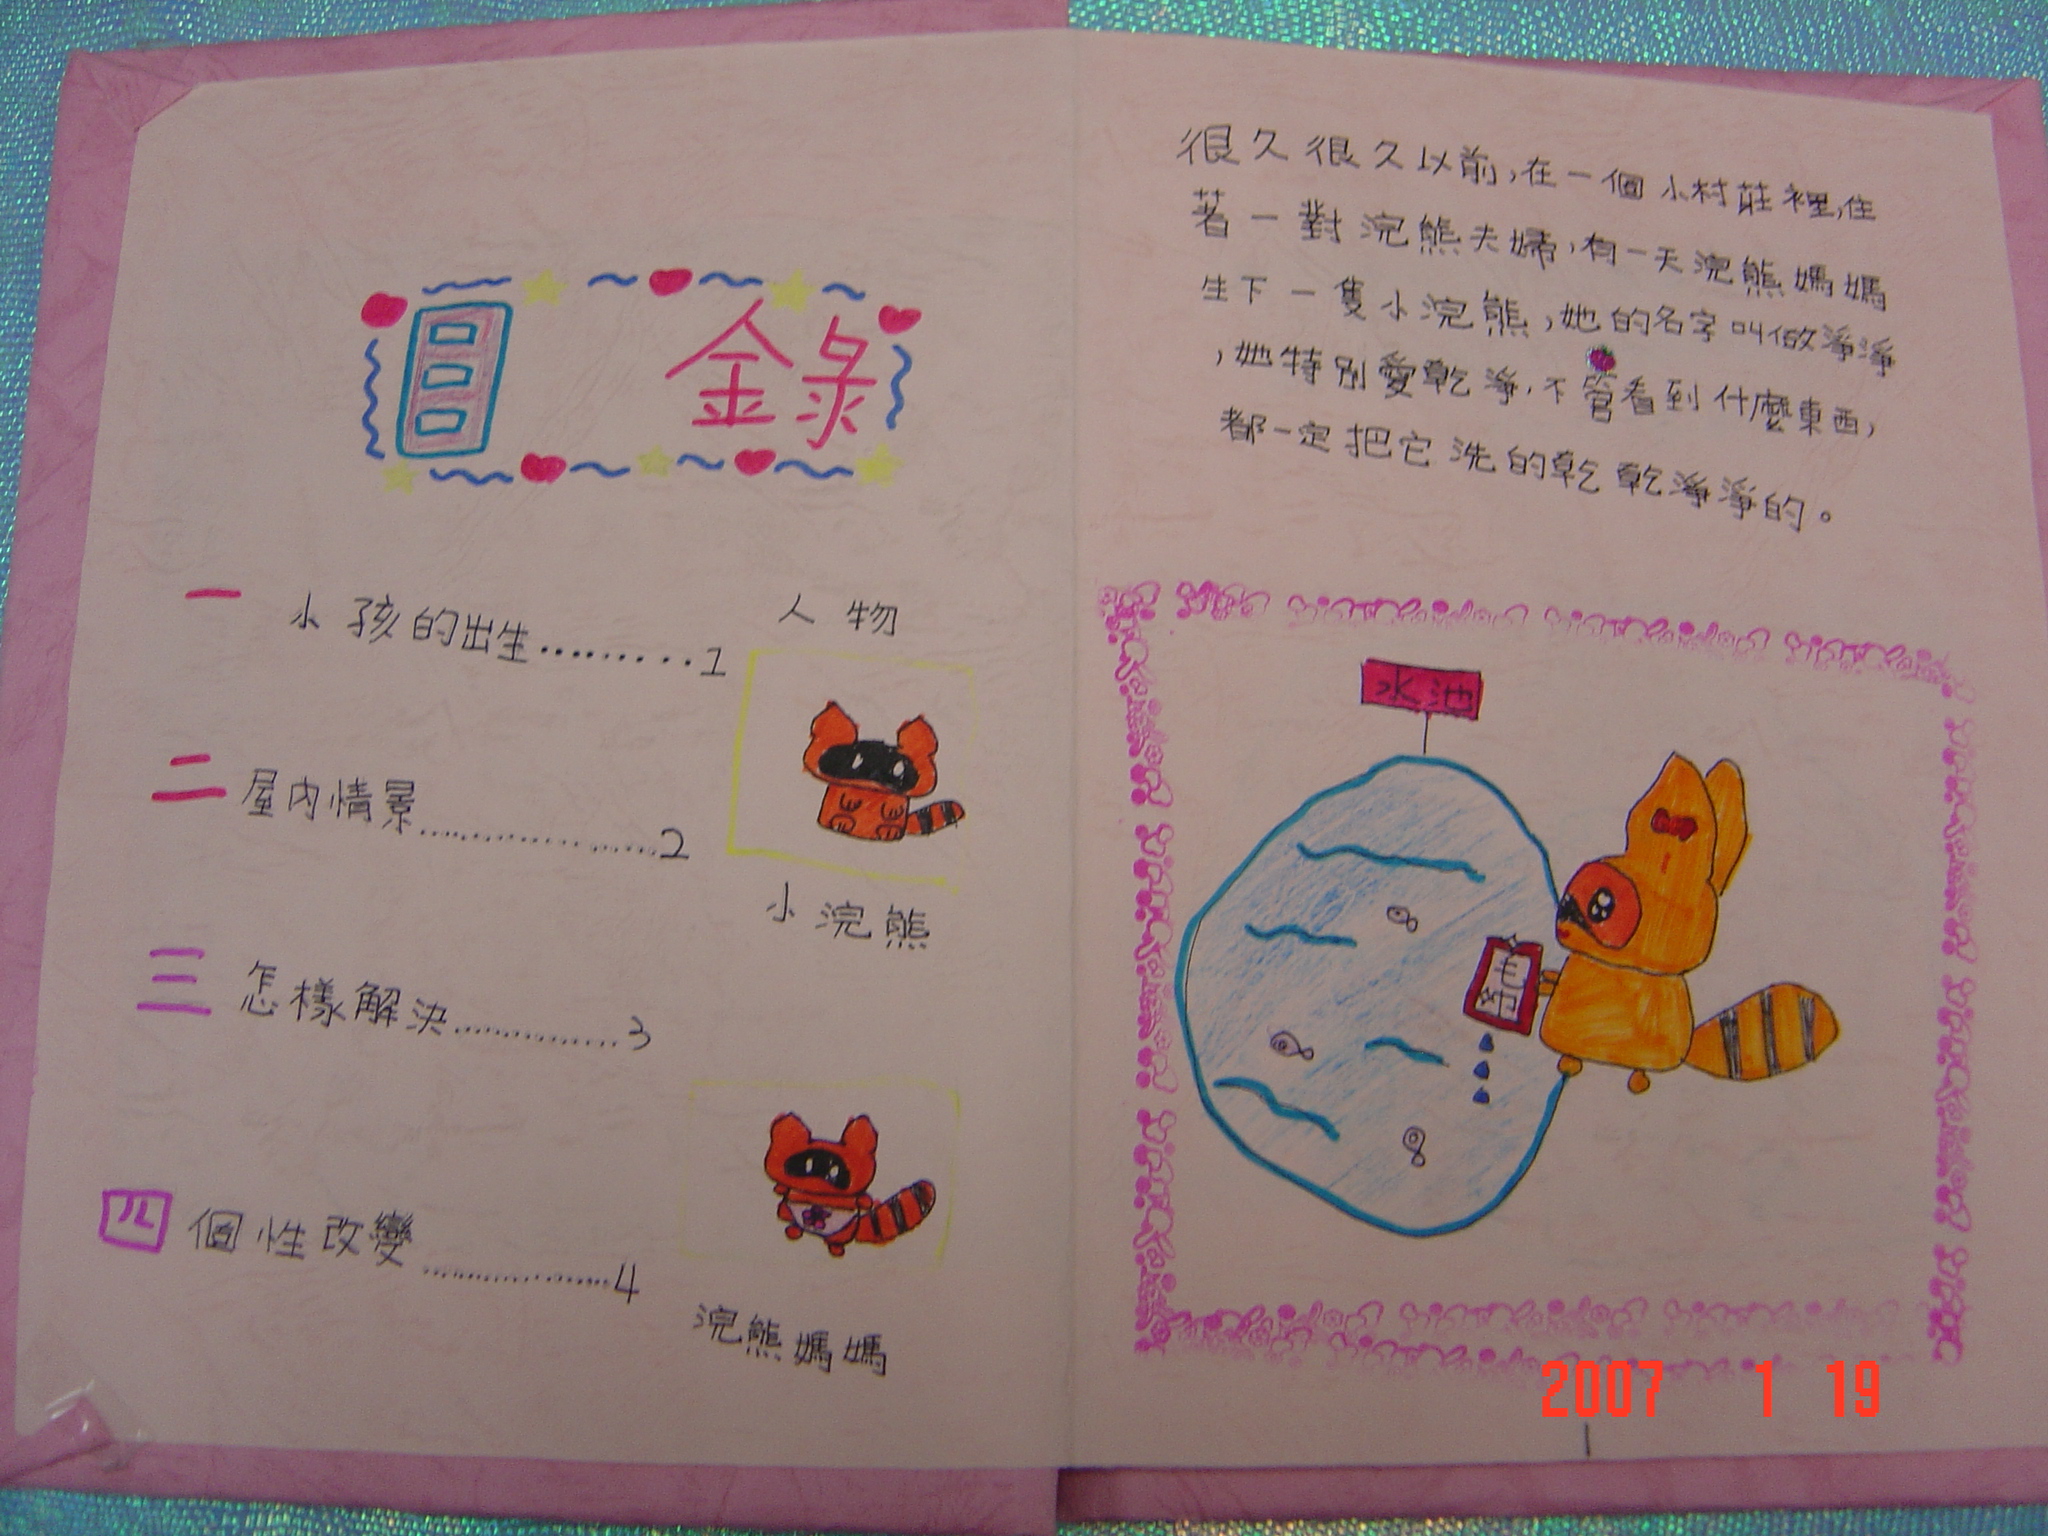 目 錄
一 小孩的出生.........1
二 屋內情景...................2
三 怎樣解決...............3
四 個性改變.................4
人物
小浣熊
浣熊媽媽
很久很久以前,在一個小村莊裡,住
著一對浣熊夫婦,有一天浣熊媽媽
生下一隻小浣熊,她的名字叫做淨淨
,她特別愛乾淨,不管看到什麼東西,
都一定把它洗的乾乾淨淨的。
水池
1
2007 1 19